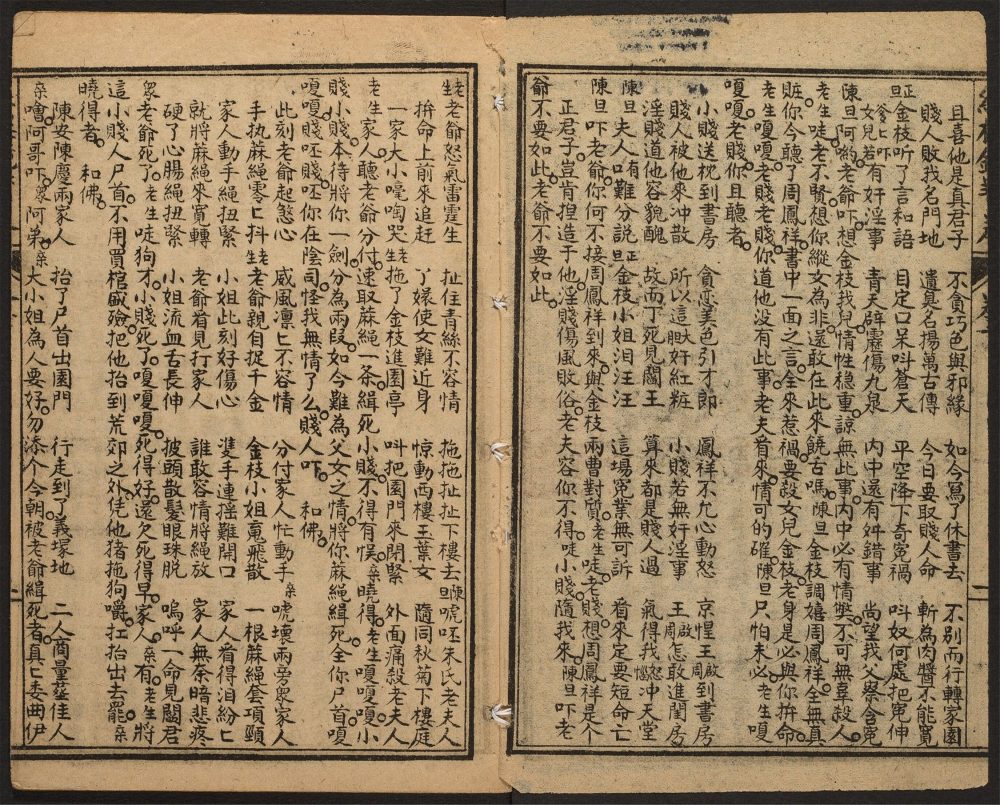 且喜他是真君子 不貪巧色與邪緣 如今寫了休書去 不別而行轉家園
賤人敗我名門地 遺臭名揚萬古傳 今日要取賤人命 斬為肉醬不能寬
正旦 金枝听了言和語 目定口呆呌蒼天 平空降下奇冤禍 呌奴何處把冤伸
爹匕吓 女兒若有奸淫事 青天霹靂傷九泉 內中還有舛錯事 尚望我父察含冤
陳旦 阿喲老爺吓。想金枝我兒情性穩重。諒無此事。內中必有情獘。不可無意殺人。
老生 唗老不賢。想你縱女為非。還敢在此來饒古嗎。陳旦 金枝調嬉周鳳祥。全無真
賍。你今聽了周鳳祥書中一面之言。全來惹禍。要殺女兒金枝。老身是必與你拚命。
老生 嗄嗄老賤老賤。你道他沒有此事。老夫看來。情可的確。陳旦 只怕未必。老生 嗄
嗄嗄。老賤你且聽者。
小賤送枕到書房 貪戀美色引才郎 鳳祥不允心動怒 京惶王啟到書房
賤人被他來冲散 所以這畨奸紅粧 小賤若無奸淫事 王啟怎敢進閨房
淫賤道他容貌醜 故而丁死見閻王 算來都是賤人過 氣得我怒冲天堂
陳旦 夫人口難分說 正旦 金枝小姐泪汪汪 這場冤業無可訴 看來定要短命亡
陳旦 吓老爺。你何不接周鳳祥到來。與金枝兩曹對質。老生 唗老賤。想周鳳祥是个
正君子。豈肯捏造于他。淫賤傷風敗俗。老夫容你不得。唗小賤隨我來。陳旦 吓老
爺不要如此。老爺不要如此。
老生 老爺怒氣雷霆生 扯住青絲不容情 拖拖扯扯下樓去 陳旦 唬呸朱氏老夫人
拚命上前來追赶 丫嬛使女難近身 惊動西樓王葉女 隨同秋菊下樓庭
一家大小毫啕哭 老生 拖了金枝進園亭 呌把園門來閉緊 外面痛殺老夫人
老生 家人聽老爺分付。速取蔴繩一条。緝死小賤。不得有悮。衆 曉得。老生 嗄嗄嗄。小
賤小賤。本待將你一劍分為兩段。如今難為父女之情。將你蔴繩緝死。全你尸首。嗄
嗄嗄。賤呸賤呸。你在陰司。怪我無情了么。賤人吓。 和佛
此刻老爺起憝心 威風凛匕不容情 分付家人忙動手 衆 唬壞兩旁衆家人
手执蔴繩零匕抖 老生 老爺親自捉千金 金枝小姐䰟飛散 一根蔴繩套項頸
家人動手繩扭緊 小姐此刻好傷心 雙手連搖難開口 家人看得泪紛匕
就將蔴繩來窨轉 老爺看見打家人 誰敢容情將繩放 家人無奈暗悲疼
硬了心腸繩扭緊 小姐流血舌長伸 披頭散髮眼珠脫 嗚呼一命見閻君
衆 老爺死了。老生 唗狗才。小賤死了。嗄嗄嗄。死得好。還欠死得早。家人。衆 有。老生 將
這小賤人尸首。不用買棺殮。把他抬到荒郊之外。任他猪拖狗嚼。扛抬出去罷。衆
曉得。者。 和佛
陳安陳慶兩家人 抬了尸首出園門 行走到了義塚地 二人商量葬佳人
衆 噲阿哥吓。衆 阿弟。衆 大小姐為人要好。勿添个。今朝被老爺緝死者。真匕委曲伊